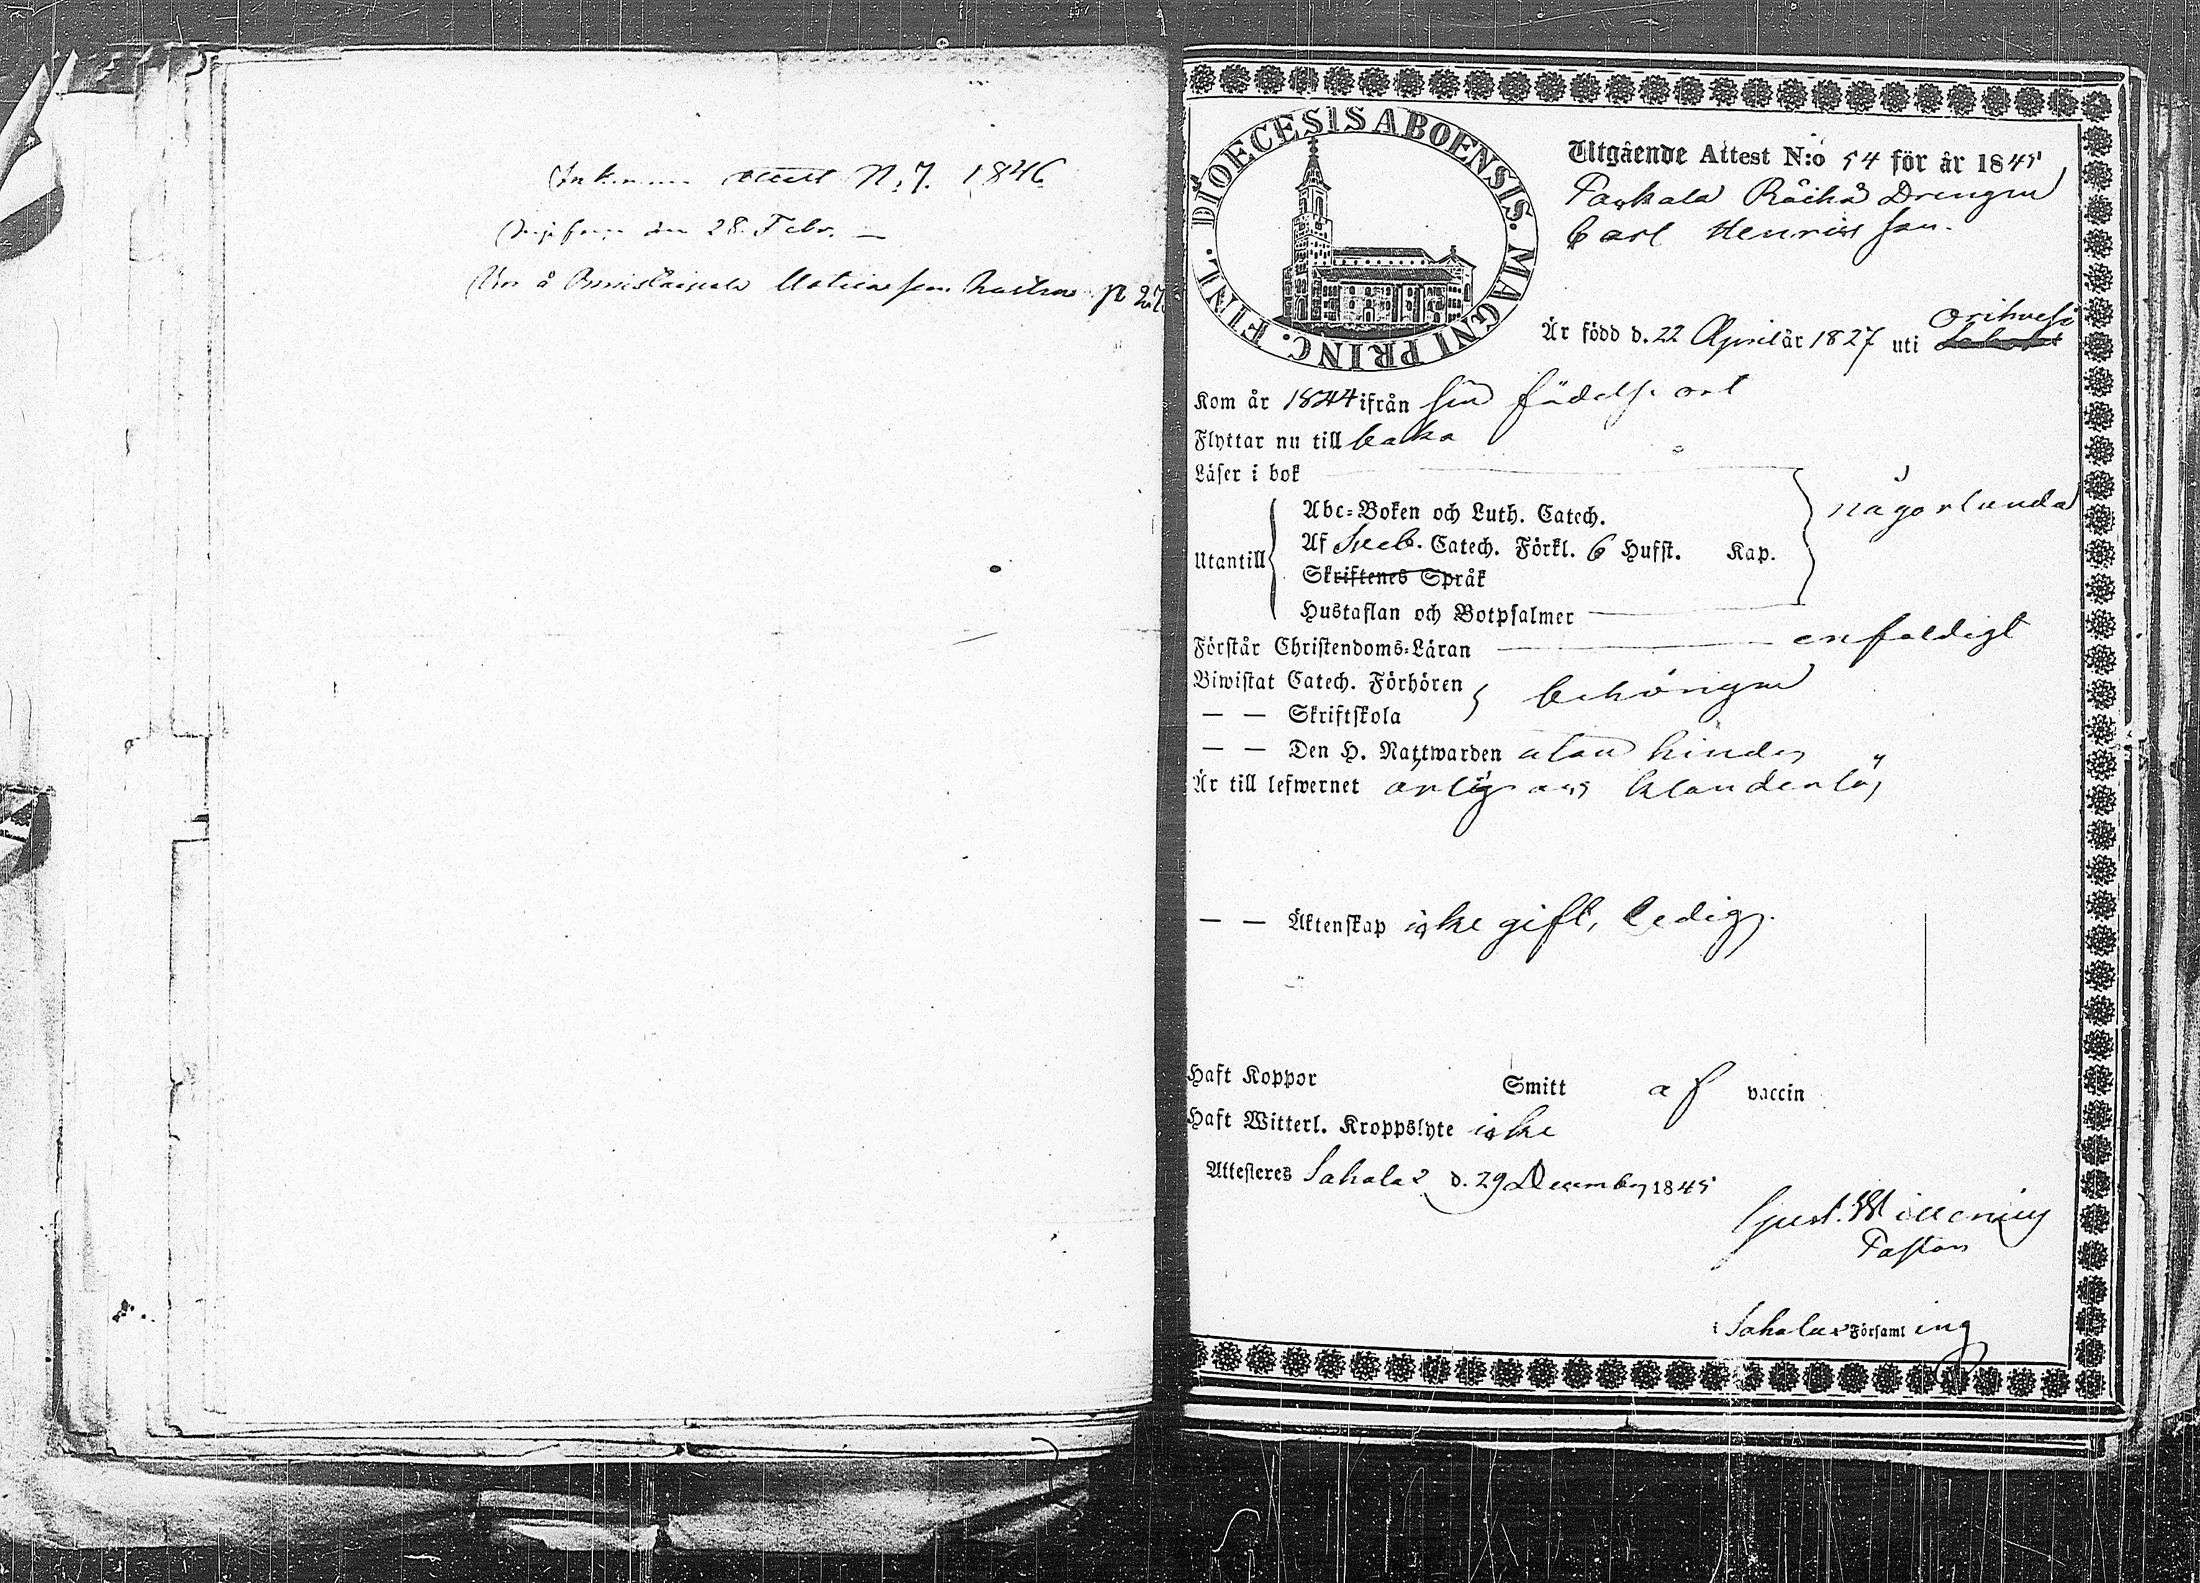 Inkommen Attest N:7. 1846
den 28. Febr. —
Bor å Matts son p 27
DIOECESIS ABOENSIS. MAGNI PRINC. FINL.
Utgående Attest N:o 54 för år 1845
Räihä Drengen
Carl Henriksson.
Är född d. 22 April år 1827 uti Orihvesi
Kom år 1844 ifrån sin födelse ort
Flyttar nu till baka
Läser i bok
någorlunda
Abc-Boken och Luth. Catech.
Utantill
Af Sveb. Catech. Förkl. 6 Hufst. Kap.
Skriftenes Språk
Hustaflan och Botpsalmer
Förstår Christendoms-Läran enfaldigt
Biwistat Catech. Förhören
behörigen
— — Skriftskola
— — Den H. Nattwarden utan hinder
Är till lefwernet ärlig och klanderlös
— — Äktenskap icke gift, ledig.
Haft Koppor Smitt af vaccin
Haft Witterl. Kroppslyte icke
Attesteres Sahalax d. 29 December 1845
Gust. Willenius
Pastor
i Sahalax Församl ing